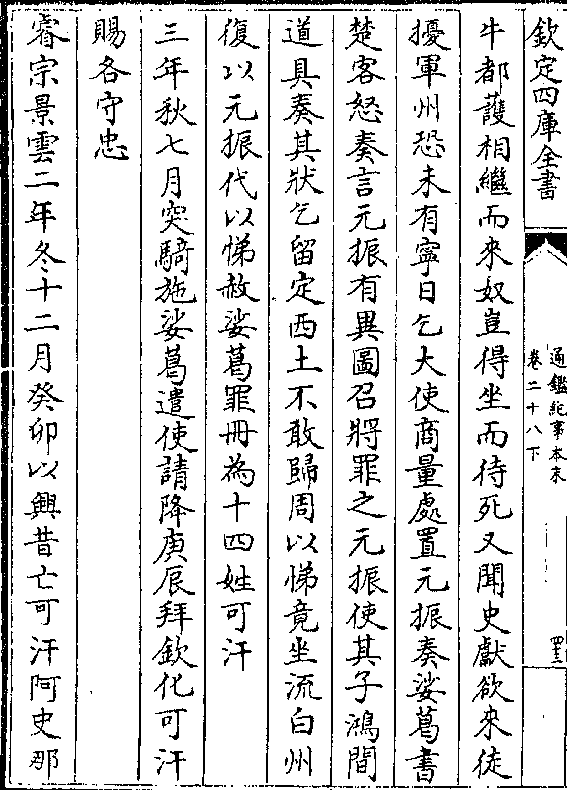 欽定四庫全書
通鑑紀事本末
卷二十八下
牛都䕶相繼而來奴豈得坐而待死又聞史獻欲來徒
擾軍州恐未有寧日乞大使商量處置元振奏娑葛書
楚客怒奏言元振有異圖召將罪之元振使其子鴻間
道具奏其狀乞留定西土不敢歸周以悌竟坐流白州
復以元振代以悌赦娑葛罪冊為十四姓可汗
三年秋七月突騎施娑葛遣使請降庚辰拜欽化可汗
賜名守忠
睿宗景雲二年冬十二月癸卯以興昔亡可汗阿史那